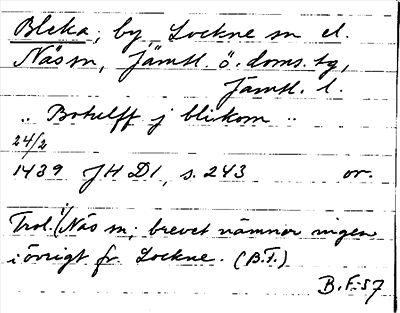 Bleka, by, Lockne sn el.
Näs sn, Jämtl. ö. doms. tg,
Jämtl. l.
" Botulff j blikom "
24/2
1439 JHD1, s. 243 or.
Trol. i Näs sn; brevet nämner ingen
i övrigt fr. Lockne. (B.F.)
B.F-57